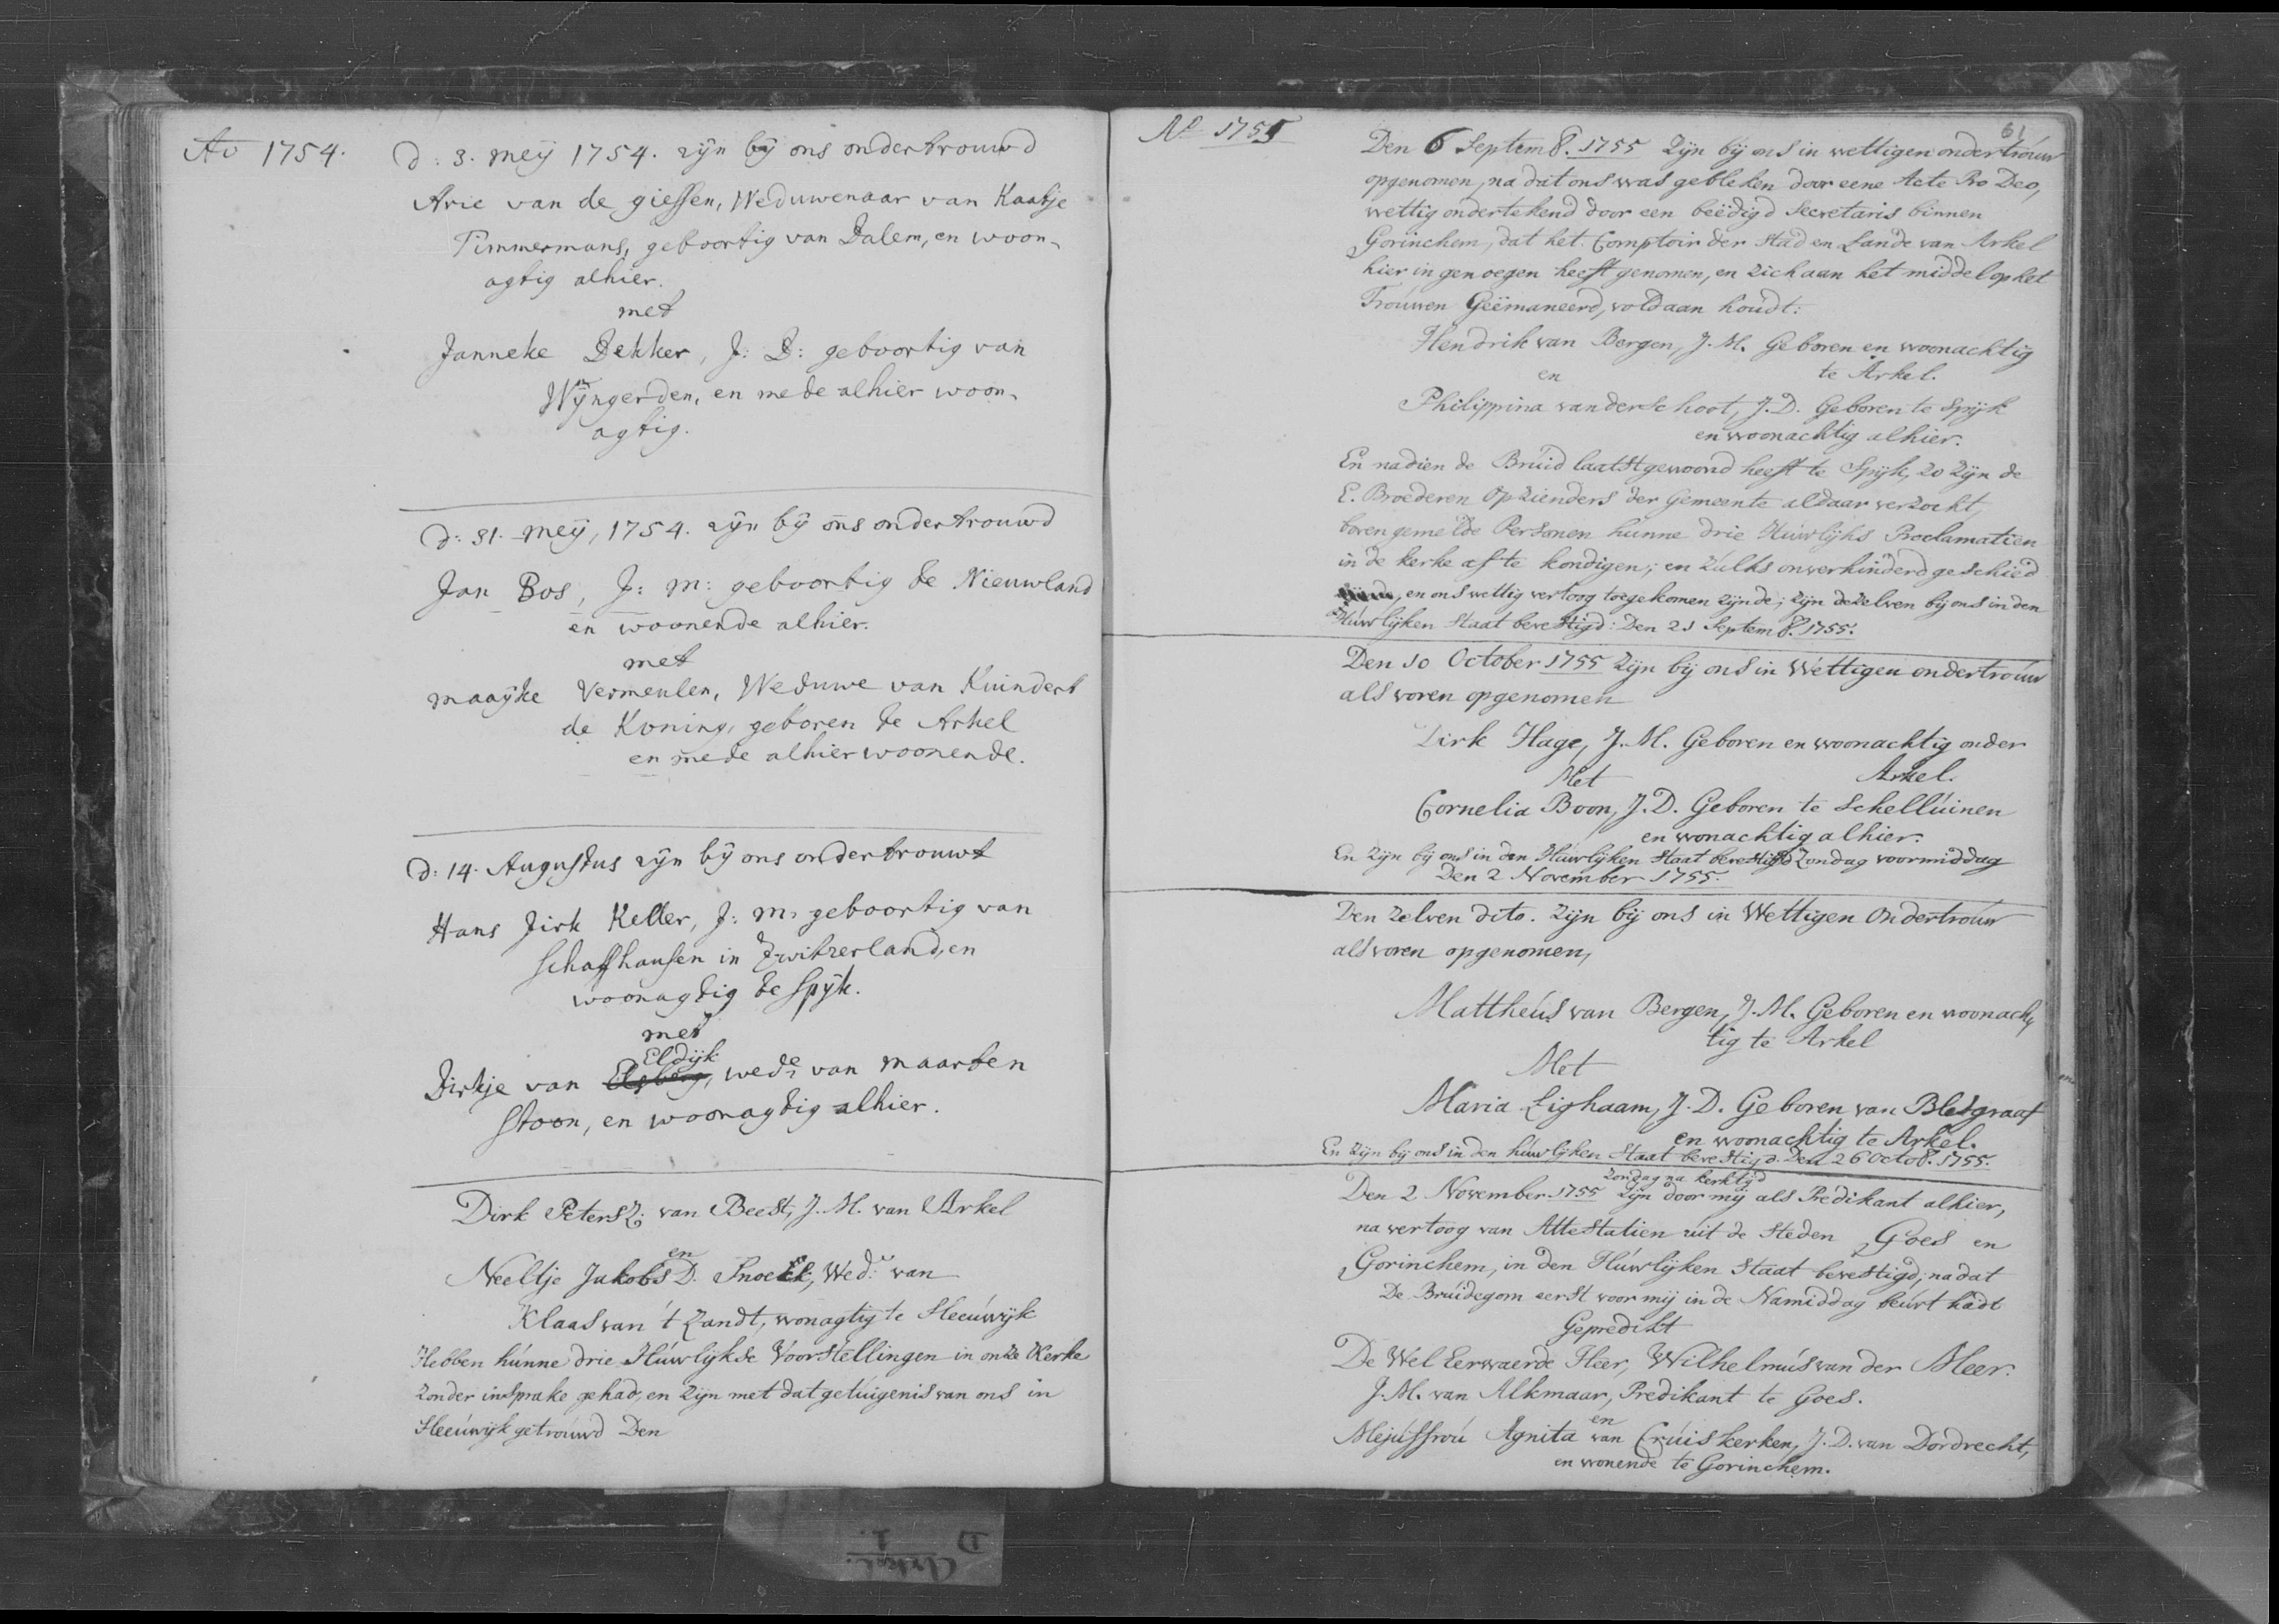 Ao 1754.
d: 3. meij 1754. zijn bij ons ondertrouwd
Arie van de giessen, Weduwenaar van Kaatje
Timmermans, geboortig van Dalem, en woon-
agtig alhier.
met
Janneke Dekker, J: D: geboortig van
Wijngerden, en mede alhier woon-
agtig.
d: 31. meij, 1754. zijn bij ons ondertrouwd
Jan Bos, J: m: geboortig te Nieuwland
en woonende alhier.
met
maaijke Vermeulen, Weduwe van Kuindert
de Koning, geboren te Arkel
en mede alhier woonende.
d: 14. Augustus zijn bij ons ondertrouwt
Hans Jirk Keller, J: m: geboortig van
Schaffhausen in Zwitzerland, en
woonagtig te Spijk.
met
Eldijk
Dirkje van Elsberg, wede van maarten
Stoon, en woonagtig alhier.
Dirk Petersz. van Beest, J. M. van Arkel
en
Neeltje Jakobs D. Snoekk, Wed: van
Klaas van 't Zandt, wonagtig te Sleeúwijk
Hebben húnne drie Húwlijkse Voorstellingen in onze Kerke
zonder insprake gehad, en zijn met dat getúigenis van ons in
Sleeúwijk getroúwd Den
61
Ao 1755
Den 6 Septemb. 1755 Zijn bij ons in wettigen ondertroúw
opgenomen, na dat ons was gebleken door eene Acte Pro Deo,
wettig ondertekend door een beëdigd Secretaris binnen
Gorinchem, dat het Comptoir der Stad en Lande van Arkel
hier in genoegen heeft genomen, en zich aan het middel op het
Troúwen Geëmaneerd, voldaan hoúdt:
Hendrik van Bergen, J. M. Geboren en woonachtig
en te Arkel.
Philippina vander Schoot, J. D. Geboren te Spijk
en woonachtig alhier.
En nadien de Brúid laatst gewoond heeft te Spijk, zo zijn de
E. Broederen Opzienders der Gemeente aldaar verzocht,
boven gemelde Personen húnne drie Húwlijks Proclamatien
in de kerke af te kondigen; en zúlks onverhinderd geschied
, en ons wettig vertoog toegekomen zijnde; zijn dezelven bij ons in den
Húwlijken Staat bevestigd: Den 21 Septemb. 1755.
Den 10 October 1755 Zijn bij ons in Wettigen ondertroúw
als voren opgenomen
Dirk Hage, J. M. Geboren en woonachtig onder
Met Arkel.
Cornelia Boon, J. D. Geboren te Schellúinen
en wonachtig alhier.
En zijn bij ons in den Húwlijken Staat bevestigd Zondag voormiddag
Den 2 November 1755.
Den zelven dito. Zijn bij ons in Wettigen Ondertroúw
als voren opgenomen,
Mattheús van Bergen, J. M. Geboren en woonach-
tig te Arkel
Met
Maria Lighaam, J. D. Geboren van Blesgraaf
en woonachtig te Arkel.
En zijn bij ons in den húwlijken Staat bevestigd. Den 26 Octob. 1755.
Zondag na kerktijd
Den 2 November 1755 Zijn door mij als Predikant alhier,
na vertoog van Attestatien uit de Steden Goes en
Gorinchem, in den Húwlijken Staat bevestigd; na dat
De Brúidegom eerst voor mij in de Namiddag beúrt hadt
Gepredikt
De Wel Eerwaerde Heer, Wilhelmús van der Meer.
J. M. van Alkmaar, Predikant te Goes.
en
Mejúffroú Agnita van Crúiskerken, J. D. van Dordrecht,
en wonende te Gorinchem.
Arkel.
I.
D